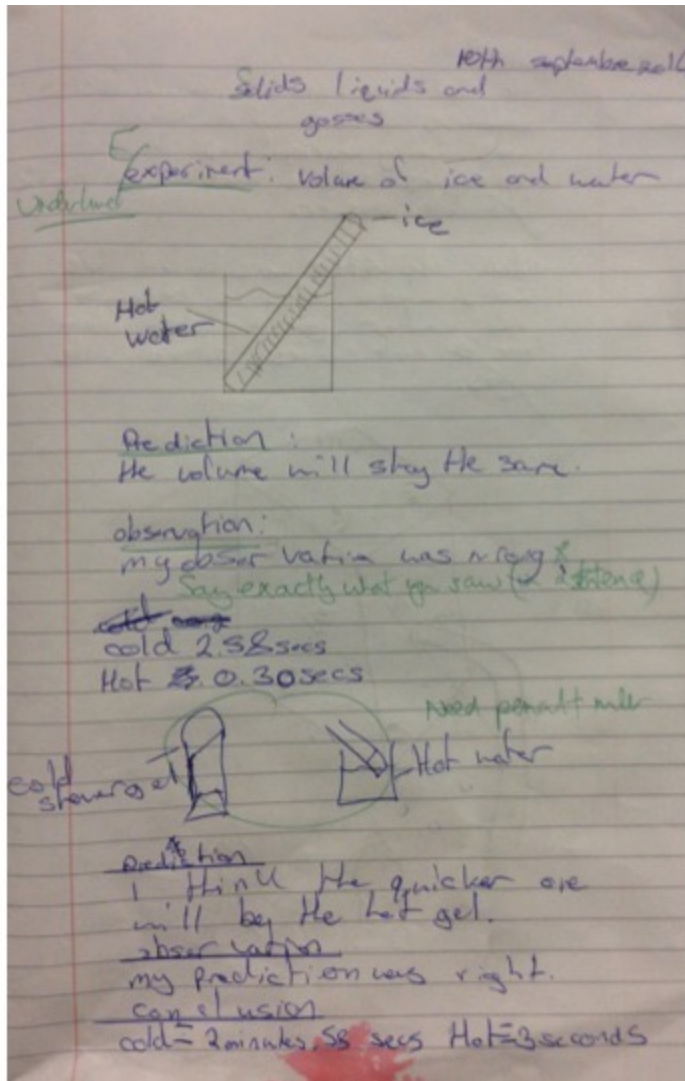 10th septembre 201
Solids liquids and
gasses
E
experiment: volume of ice and water
Underlined
ice
Hot
water
Prediction:
the volume will stay the same.
observation:
my observation was wrong *
Say exactly what you saw
cold
cold 2.58secs
Hot 0.30secs
Need pencil + ruler
cold
shower gel
Hot water
Prediction
I think the quicker one
will by the hot gel.
observation
my prediction was right.
conclusion
cold= 2minutes.58 secs Hot=3seconds